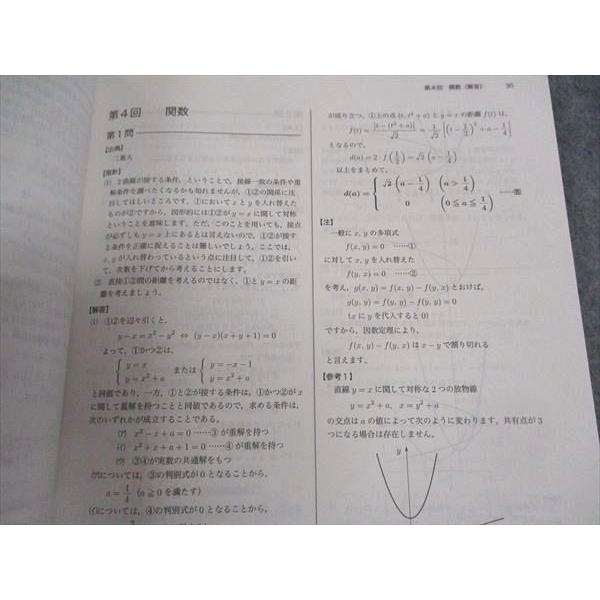 第4回 関数
第1問
【出典】
三重大
【指針】
(1) 2曲線が接する条件，ということで，接線一致の条件や重
解条件を調べたくなるかも知れませんが，①②の関係に注
目してほしいところです。①において x と y を入れ替えた
ものが②ですから，図形的には①②が y = x に関して対称
ということを意味します。ただ，このことを用いても，接点
が必ずしも y = x 上にあるとは言えないので，①②が接す
る条件を正確に捉えることは難しいでしょう。ここでは，
x, y が入れ替わっているという点に注目して，①②を引い
て，次数を下げてから考えることにします。
(2) 直接①②間の距離を考えるのではなく，①と y = x の距
離を考えましょう。
【解答】
(1) ①②を辺々引くと，
y − x = x² − y² ⇔ (y − x)(x + y + 1) = 0
よって，①かつ②は，
{ y = x
y = x² + a または { y = −x − 1
y = x² + a
と同値であり，一方，①と②が接する条件は，①かつ②が x
に関して重解を持つことと同値であるので，求める条件は，
次のいずれかが成立することである。
(ア) x² − x + a = 0 ……③ が重解を持つ
(イ) x² + x + a + 1 = 0 ……④ が重解を持つ
(ウ) ③④が実数の共通解をもつ
(ア)については，③の判別式が 0 となることから，
a = 1/4 (a ≧ 0 を満たす)
(イ)については，④の判別式が 0 となることから，
第4回 関数（解答） 95
が成り立つ。①上の点 (t, t² + a) と y = x の距離 f(t) は，
f(t) = |t − (t² + a)|/√2 = 1/√2 |(t − 1/2)² + a − 1/4|
となるので，
d(a) = 2・f(1/2) = √2 (a − 1/4)
以上をまとめて，
d(a) = { √2 (a − 1/4) (a > 1/4)
0 (0 ≦ a ≦ 1/4) ……答
【注】
一般に x, y の多項式
f(x, y) = 0 ……①
に対して x, y を入れ替えた
f(y, x) = 0 ……②
を考え，g(x, y) = f(x, y) − f(y, x) とおけば，
g(y, y) = f(y, y) − f(y, y) = 0
(x に y を代入すると 0)
ですから，因数定理により，
f(x, y) − f(y, x) は x − y で割り切れる
と言えます。
【参考1】
直線 y = x に関して対称な2つの放物線
y = x² + a, x = y² + a
の交点は a の値によって次のように変わります。共有点が 3
つになる場合は存在しません。
y